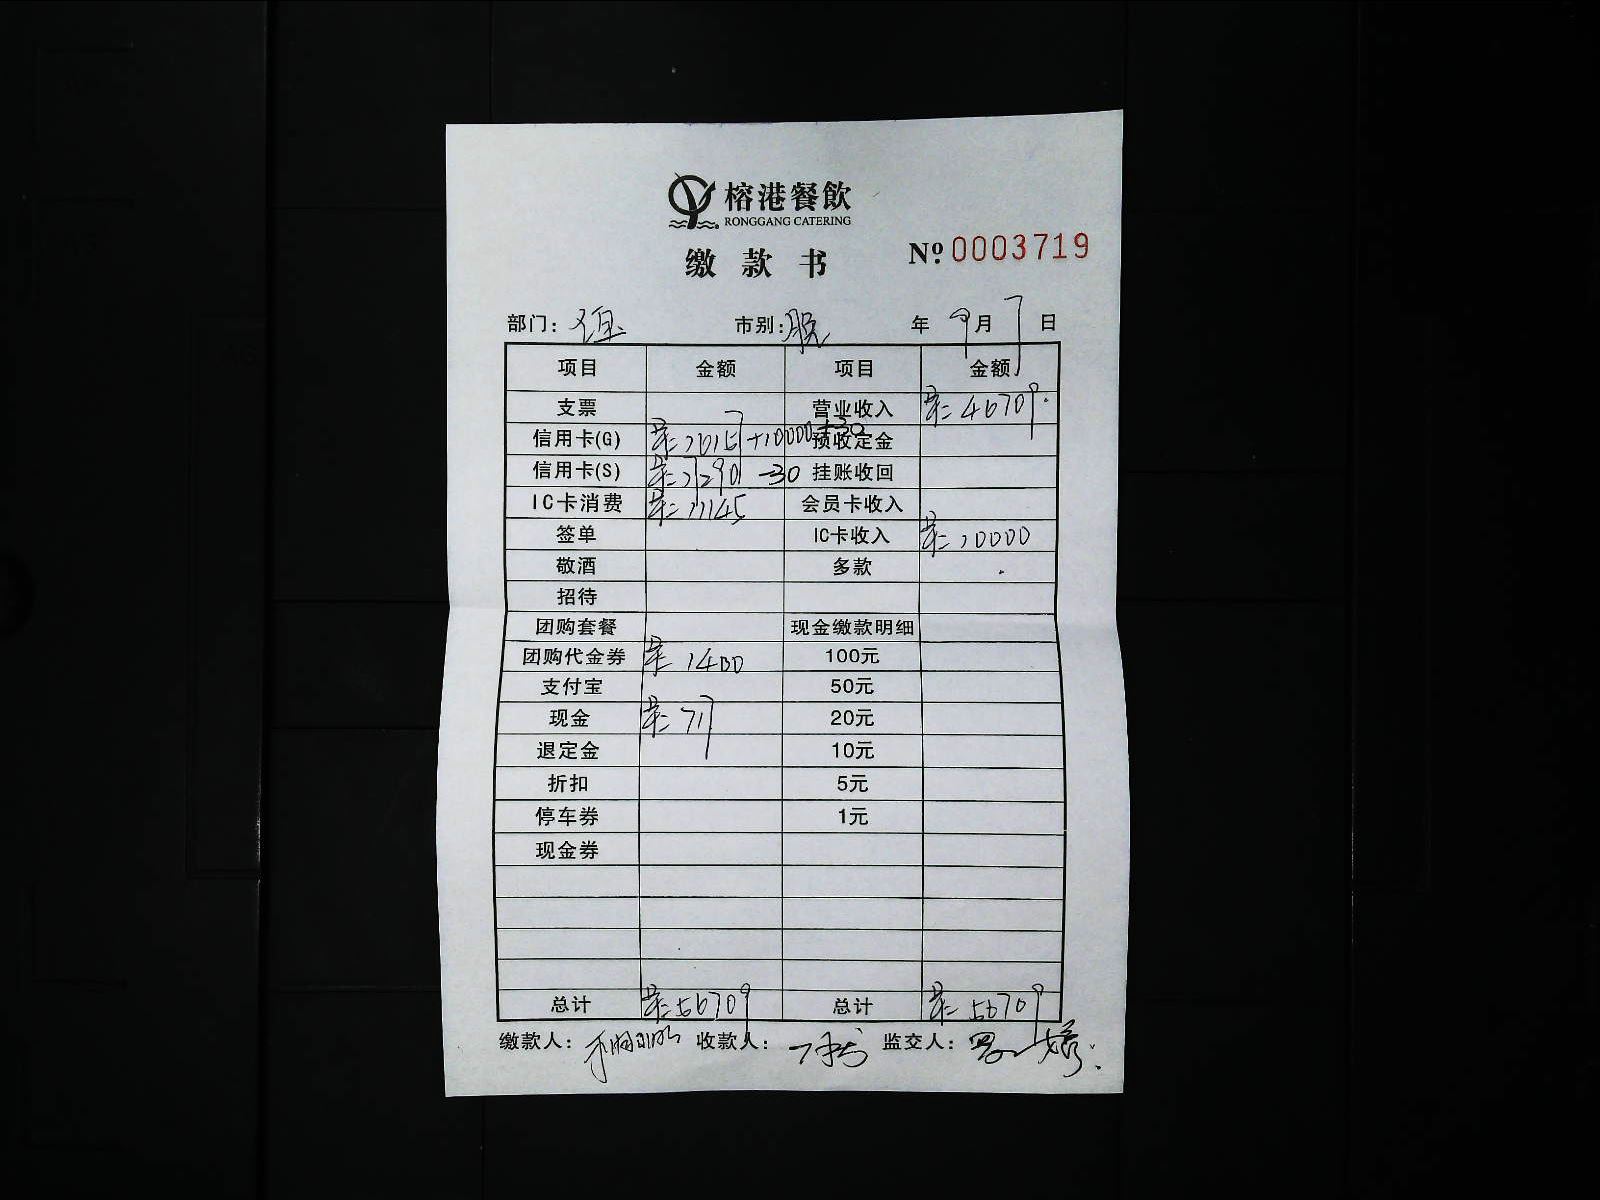 榕港餐飲
RONGGANG CATERING
缴款书
Nº 0003719
部门: 市别: 年 9月 7日
项目 金额 项目 金额
支票 营业收入 46709
信用卡(G) +10000+30 预收定金
信用卡(S) -30 挂账收回
IC卡消费 11145 会员卡收入
签单 IC卡收入 10000
敬酒 多款
招待
团购套餐 现金缴款明细
团购代金券 1400 100元
支付宝 50元
现金 717 20元
退定金 10元
折扣 5元
停车券 1元
现金券
总计 56709 总计 56709
缴款人: 收款人: 监交人: